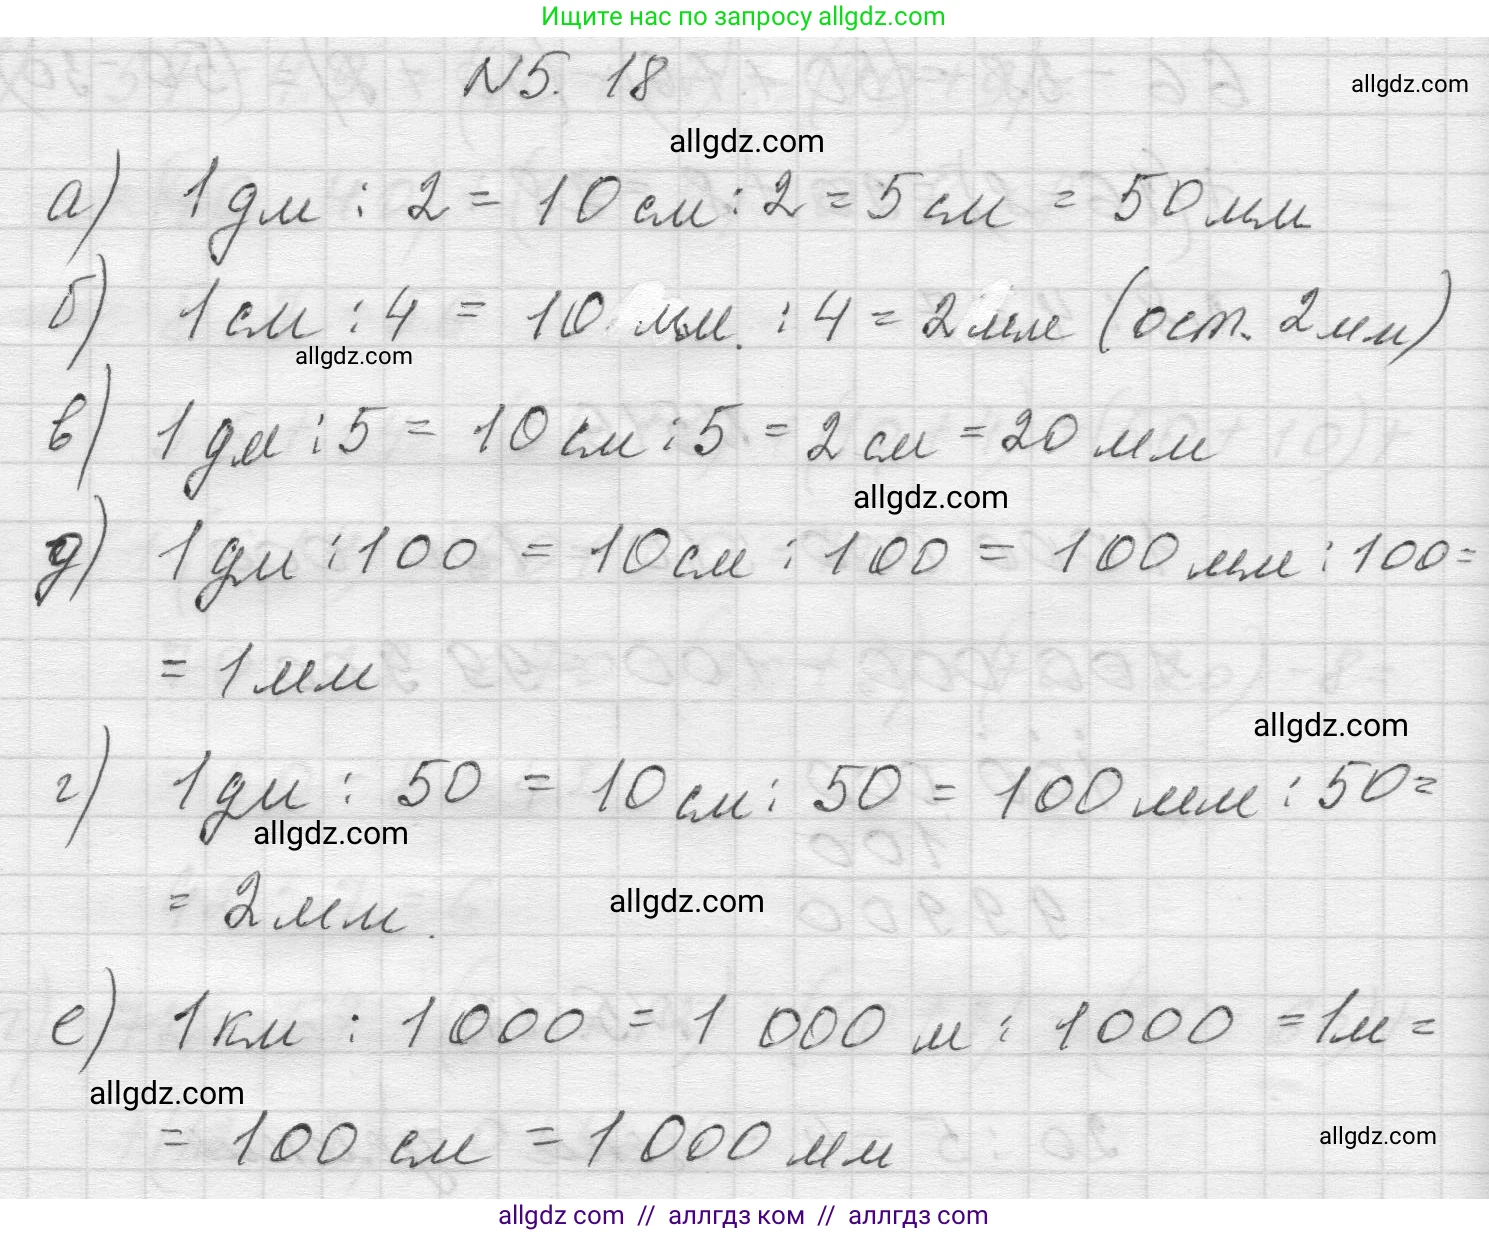 Ищите нас по запросу allgdz.com
N5. 18
allgdz.com
allgdz.com
а) 1 дм : 2 = 10 см : 2 = 5 см = 50 мм
б) 1 см : 4 = 10 мм. : 4 = 2 мм (ост. 2 мм)
allgdz.com
в) 1 дм : 5 = 10 см : 5 = 2 см = 20 мм
allgdz.com
д) 1 дм : 100 = 10 см : 100 = 100 мм : 100 =
= 1 мм
allgdz.com
г) 1 дм : 50 = 10 см : 50 = 100 мм : 50 =
allgdz.com
= 2 мм.
allgdz.com
е) 1 км : 1000 = 1 000 м : 1000 = 1 м =
allgdz.com
= 100 см = 1 000 мм
allgdz.com
allgdz com // аллгдз ком // аллгдз com